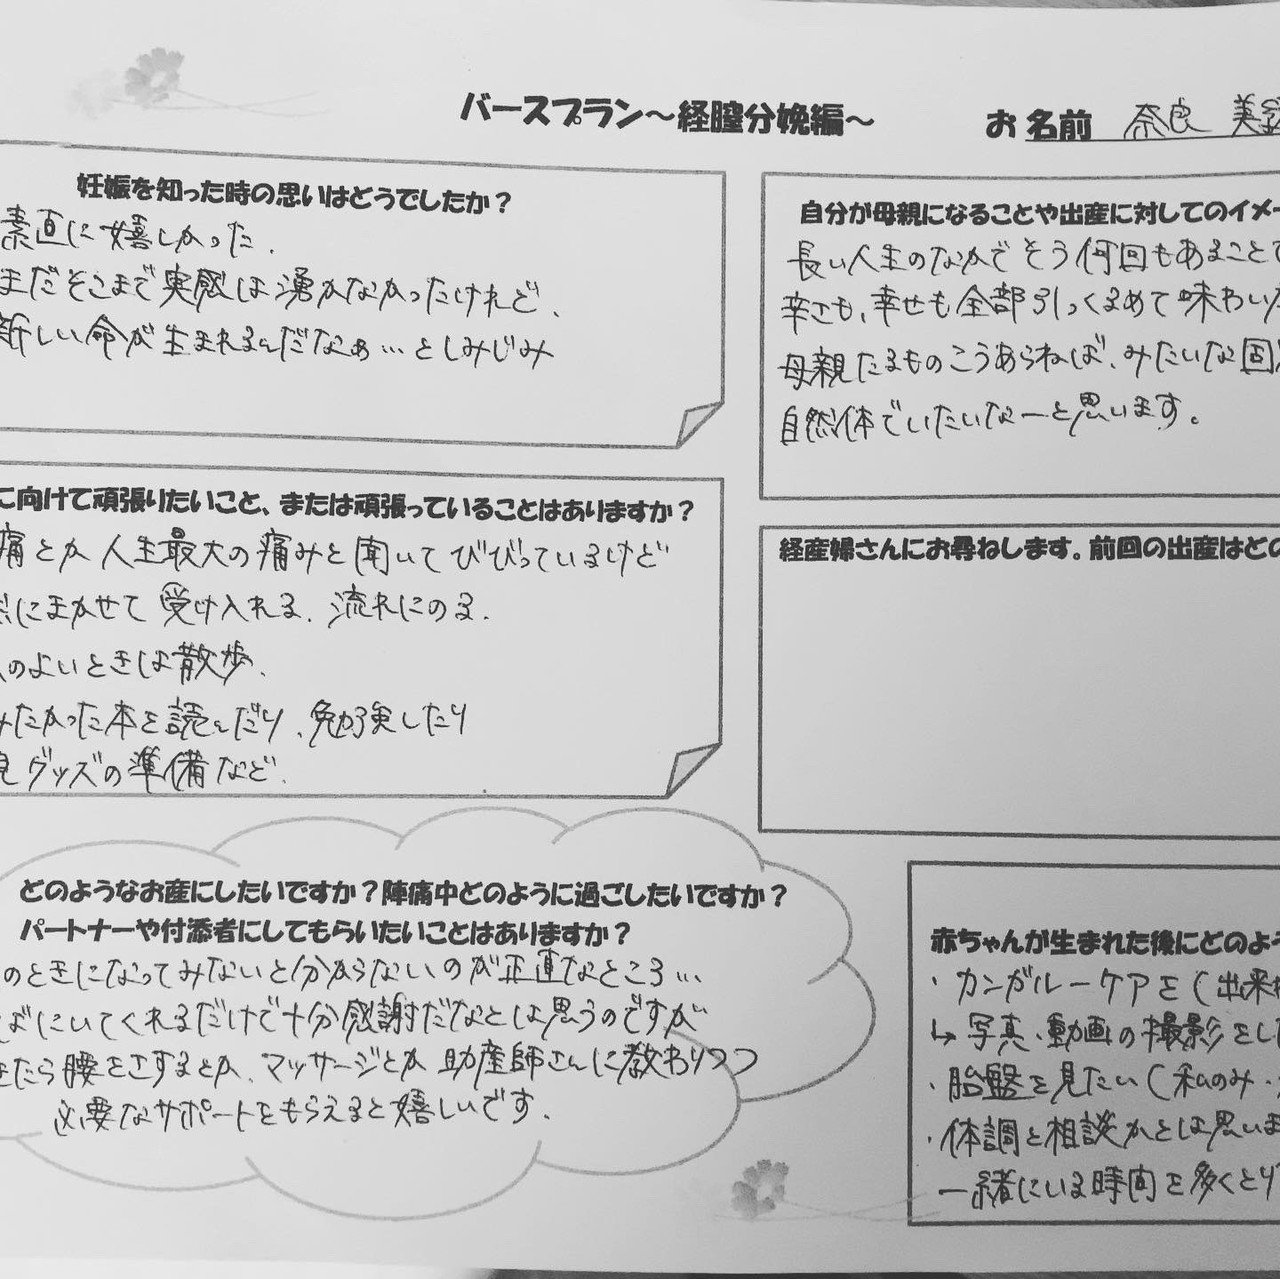 バースプラン～経膣分娩編～
お名前 奈良 美
妊娠を知った時の思いはどうでしたか？
素直に嬉しかった.
まだそこまで実感は湧かなかったけれど、
新しい命が生まれるんだなぁ…としみじみ
自分が母親になることや出産に対してのイメー
長い人生のなかでそう何回もあることで
辛さも、幸せも全部引っくるめて味わいた
母親たるものこうあらねば、みたいな固
自然体でいたいなーと思います。
に向けて頑張りたいこと、または頑張っていることはありますか？
痛とか人生最大の痛みと聞いてびびっているけど
にまかせて受け入れる、流れにのる.
のよいときは散歩.
みたかった本を読んだり、勉強したり
グッズの準備など.
経産婦さんにお尋ねします。前回の出産はどの
どのようなお産にしたいですか？陣痛中どのように過ごしたいですか？
パートナーや付添者にしてもらいたいことはありますか？
のときになってみないと分からないのが正直なところ…
ばにいてくれるだけで十分感謝だなとは思うのですが
たら腰をさするとか、マッサージとか助産師さんに教わりつつ
必要なサポートをもらえると嬉しいです.
赤ちゃんが生まれた後にどのよう
・カンガルーケアを（出来
↳写真・動画の撮影をし
・胎盤を見たい（私のみ・
・体調と相談かとは思いま
一緒にいる時間を多くとり